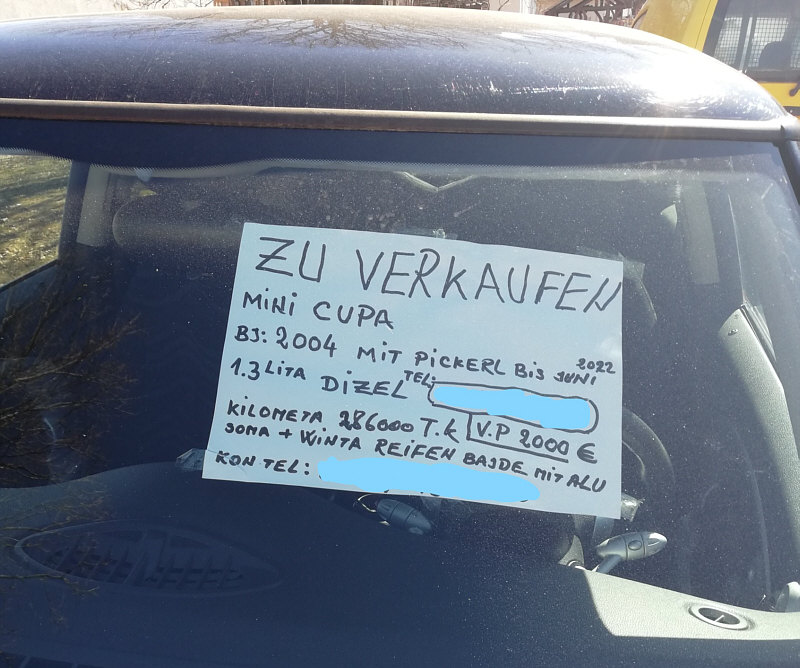 ZU VERKAUFEN
MINI CUPA
BJ: 2004 MIT PICKERL BIS JUNI 2022
1.3 LITA DIZEL TEL:
KILOMETA 286000 T.K V.P 2000 €
SOMA + WINTA REIFEN BAJDE MIT ALU
KON TEL: